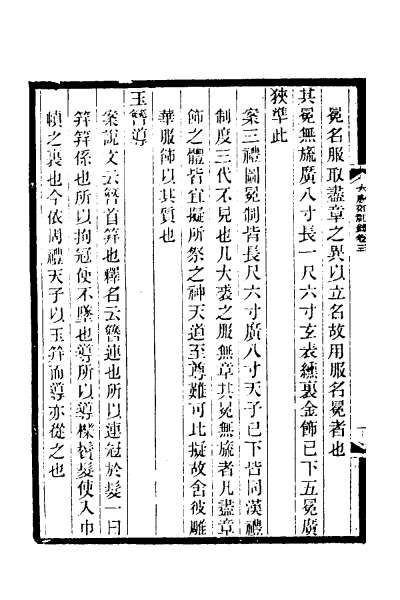 冕名服取盡章之異以立名故用服名冕者也
其冕無旒廣八寸長一尺六寸玄表纁裏金飾已下五冕廣
狹準此
案三禮圖冕制皆長尺六寸廣八寸天子已下皆同漢禮
制度三代不見也凡大裘之服無章其冕無旒者凡盡章
飾之體皆宜擬所祭之神天道至尊難可比擬故舍彼雕
華服飾以其質也
玉簪導
案說文云簪首筓也釋名云簪連也所以連冠於髮一曰
筓筓係也所以拘冠使不墜也導所以導櫟鬢髮使入巾
幘之裏也今依周禮天子以玉筓而導亦從之也
大唐郊祀錄卷三